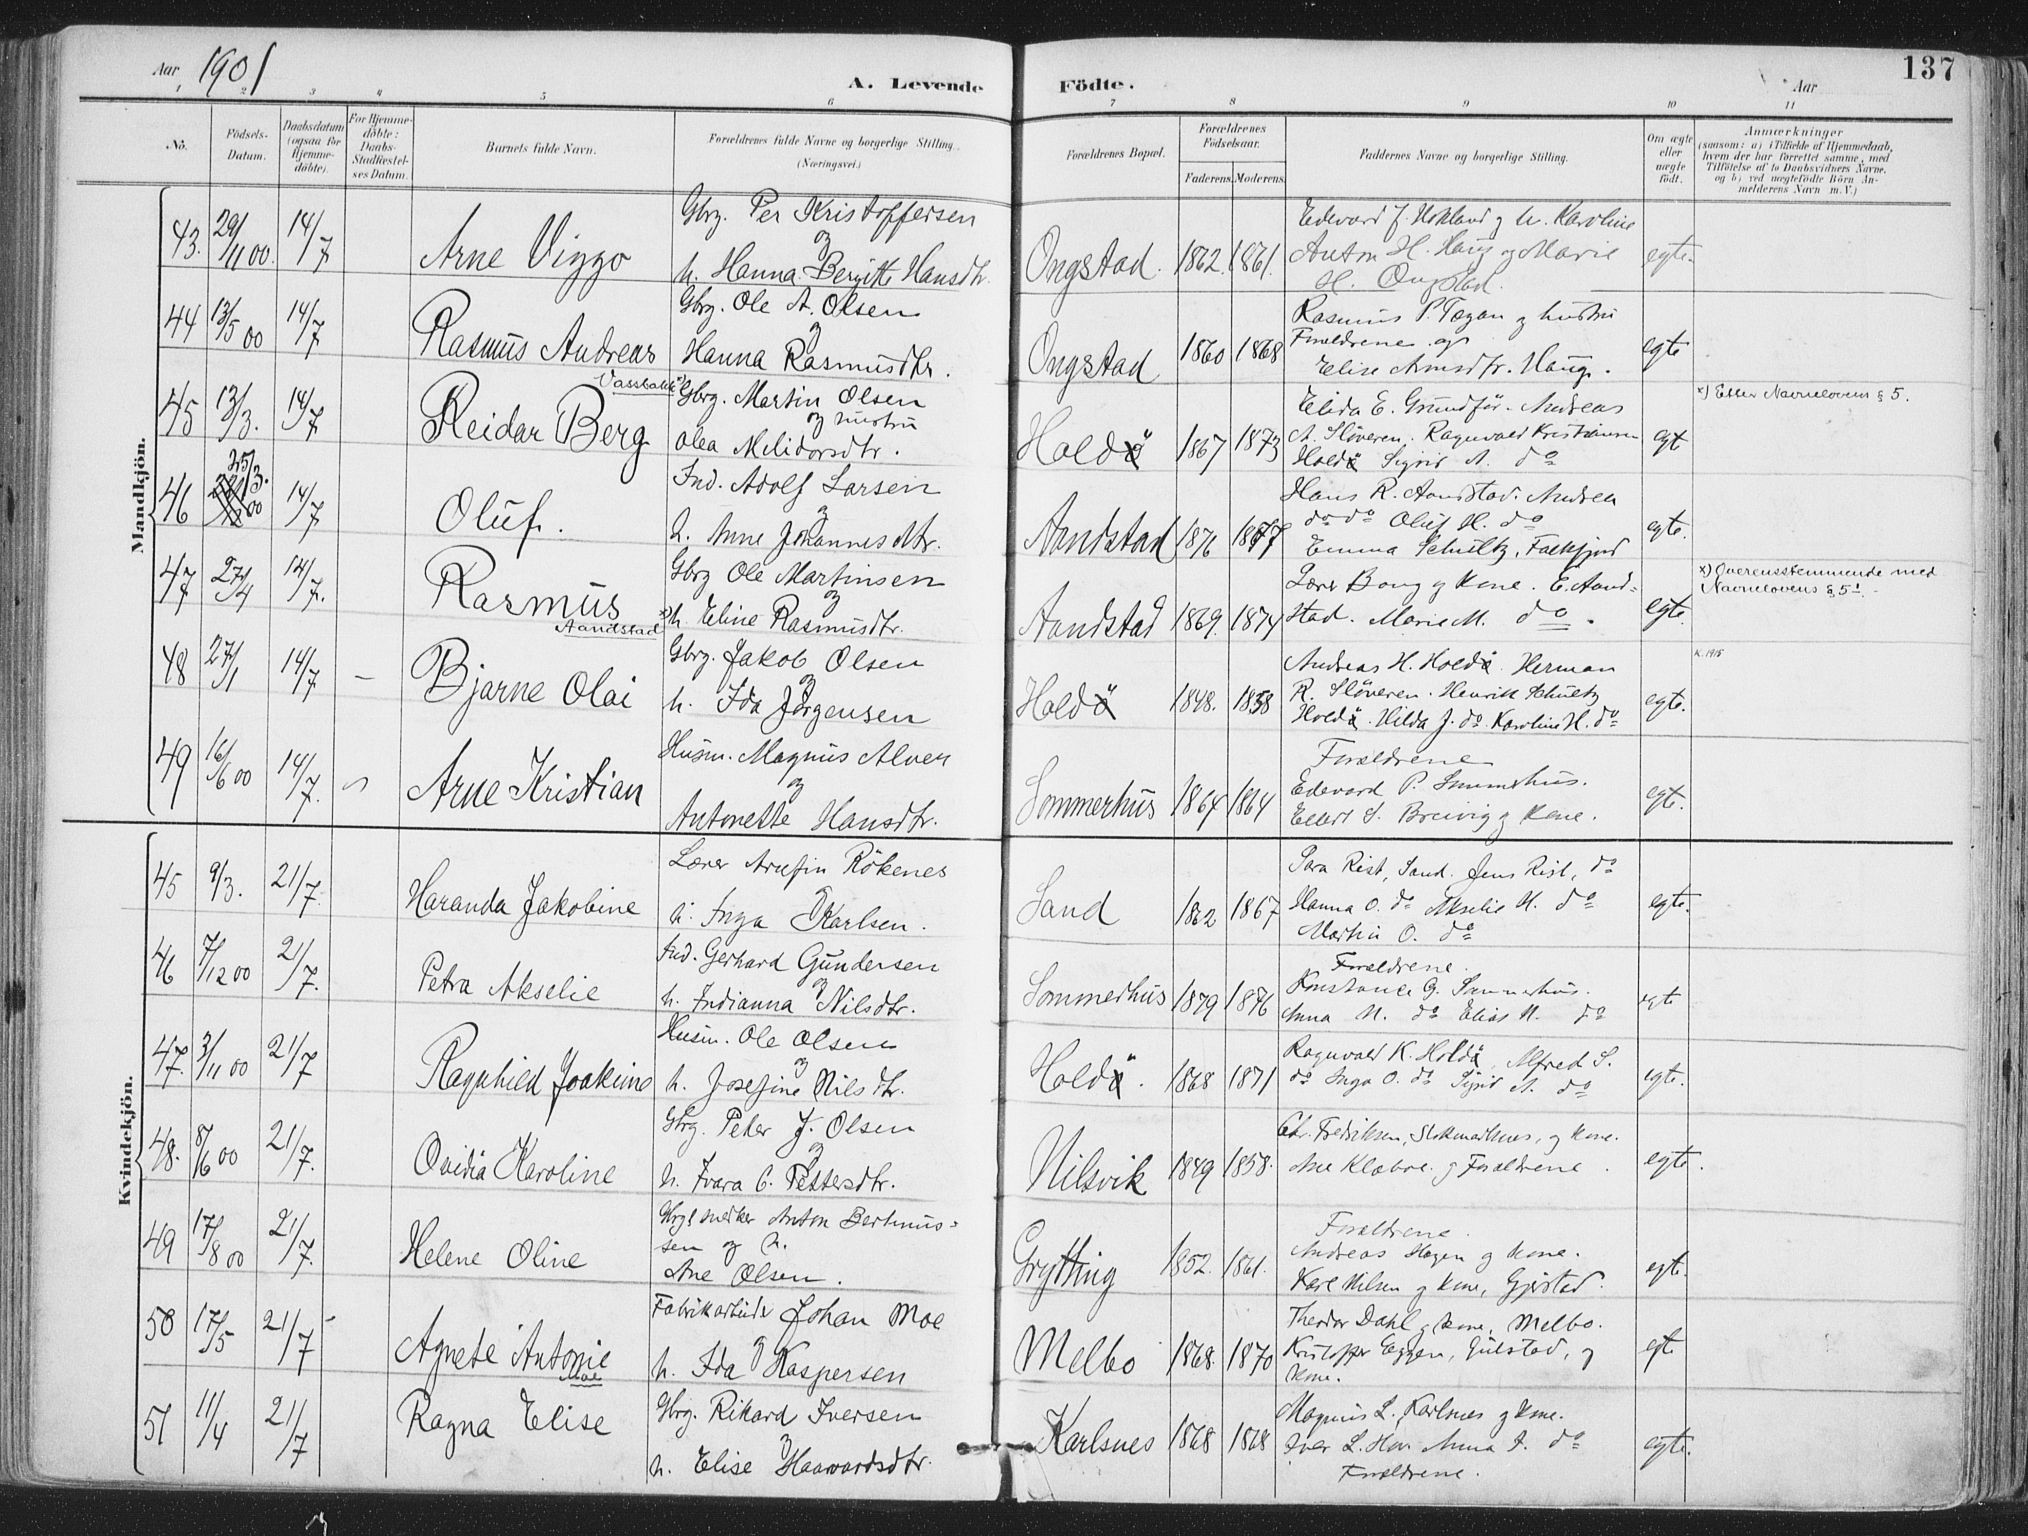 Aar 1901
A. Levende Födte.
Aar
137
1 2 3 4 5 6 7 8 9 10 11
No.
Födsels-Datum.
Daabsdatum (ogsaa for Hjemme-döbte).
For Hjemme-döbte: Daabs-Stadfæstel-ses Datum.
Barnets fulde Navn.
Forældrenes fulde Navne og borgerlige Stilling. (Næringsvei.)
Forældrenes Bopæl.
Forældrenes Födselsaar.
Faderens. Moderens.
Faddernes Navne og borgerlige Stilling.
Om ægte eller uægte födt.
Anmærkninger
(saasom: a) i Tilfælde af Hjemmedaab,
hvem der har forrettet samme, med
Tilföielse af to Daabsvidners Navne,
og b) ved uægtefödte Börn An-
melderens Navn m. V.)
Mandkjön.
43. 29/11 00. 14/7 Arne Viggo
Gbrg. Per Kristoffersen
og
h. Hanna Bergitte Hansdtr.
Ongstad. 1862. 1861.
Edevard J. Hokland og h. Karoline
Anton H. Haug og Marie
H. Ongstad.
egte.
44 13/5 00 14/7 Rasmus Andreas
Gbrg. Ole A. Olsen
og
Hanna Rasmusdtr.
Ongstad 1860 1868
Rasmus P. Tegan og hustru
Forældrene og
Elise Arnsdtr. Haug.
egte
45 13/3. 14/7 Reidar Berg
Vassbakk x)
Gbrg. Martin Olsen
og hustru
Olea Melidorsdtr.
Holdö 1867 1873
Elida E. Grundför. Andreas
A. Slöveren. Ragnvald Kristiansen
Holdö Sigrid A. do
egt
x) Efter Navnelovens § 5.
46 25/3. 14/7 Oluf.
Ind. Adolf Larsen
og
h. Anne Johannesdtr.
Aandstad 1876 1877
Hans R. Aandstad. Andrea
do do Oluf H. do
Emma Schultz, Falkfjord
egte.
47 27/4 14/7. Rasmus
Aandstad x)
Gbrg Ole Martinsen
og
h. Eline Rasmusdtr.
Aandstad 1869. 1874
Lærer Bong og Kone. E. Aand-
stad. Marie M. do.
egte.
x) Overensstemmende med
Navnelovens § 5!
48 27/1 14/7 — Bjarne Olai
Gbrg. Jakob Olsen
og
h. Ida Jörgensen
Holdö 1848. 1858
Andreas H. Holdö. Herman
R. Slöveren. Henrik Schultz
Holdö. Hilda J. do. Karoline H. do
egte.
K. 1915
49 16/6 00 14/7. Arne Kristian
Husm. Magnus Alver
og
Antonette Hansdtr.
Sommerhus 1864 1864
Forældrene
Edevard P. Sommerhus.
Ellert S. Breivig og Kone.
egte.
Kvindekjön.
45 9/3. 21/7 Haranda Jakobine
Lærer Arnfin Rökenes
og
h. Inga Karlsen.
Sand 1862 1867
Sara Rist, Sand. Jens Rist, do
Hanna O. do Akselie H. do
Martin O. do
egte.
46 7/12 00 21/7. Petra Akselie
Ind. Gerhard Gundersen
og
h. Indianna Nilsdtr.
Sommerhus 1879 1876
Forældrene.
Konstance G. Sommerhus.
Anna N. do Elias N. do
egte
47. 3/11 00 21/7 Ragnhild Joakime
Husm. Ole Olsen
og
h. Josefine Nilsdtr.
Holdö. 1868 1871
Ragnvald K. Holdö. Alfred S.
do Inga O. do Sigrid A. do
egte.
48. 8/6 00 21/7. Ovidia Karoline
Gbrg. Peter J. Olsen
og
h. Ivara C. Pettersdtr.
Nilsvik 1849 1858.
Chr. Fredriksen, Stokmarknes, og kone.
Ane Klæboe og Forældrene.
egte.
49 17/8 00 21/7. Helene Oline
Gbrg Snedker Anton Bertinus-
sen og h.
Ane Olsen.
Grytting 1852. 1861.
Forældrene.
Andreas Hagen og kone.
Karl Nilsen og kone, Gjerstad.
egte.
50 17/5 21/7 Agnete Antonie
Moe
Fabrikarbeider Johan Moe
og
h. Ida Kaspersen
Melbo 1868. 1870
Theodor Dahl og kone, Melbo.
Kristoffer Eggen, Gulstad, og
kone.
egte
51 11/4 21/7 Ragna Elise
Gbrg. Rikard Iversen
og
h. Elise Haavardsdtr.
Karlsnes 1868 1868
Magnus L. Karlsnes og kone.
Iver L. Hov Anna I. do
Forældrene.
egte.